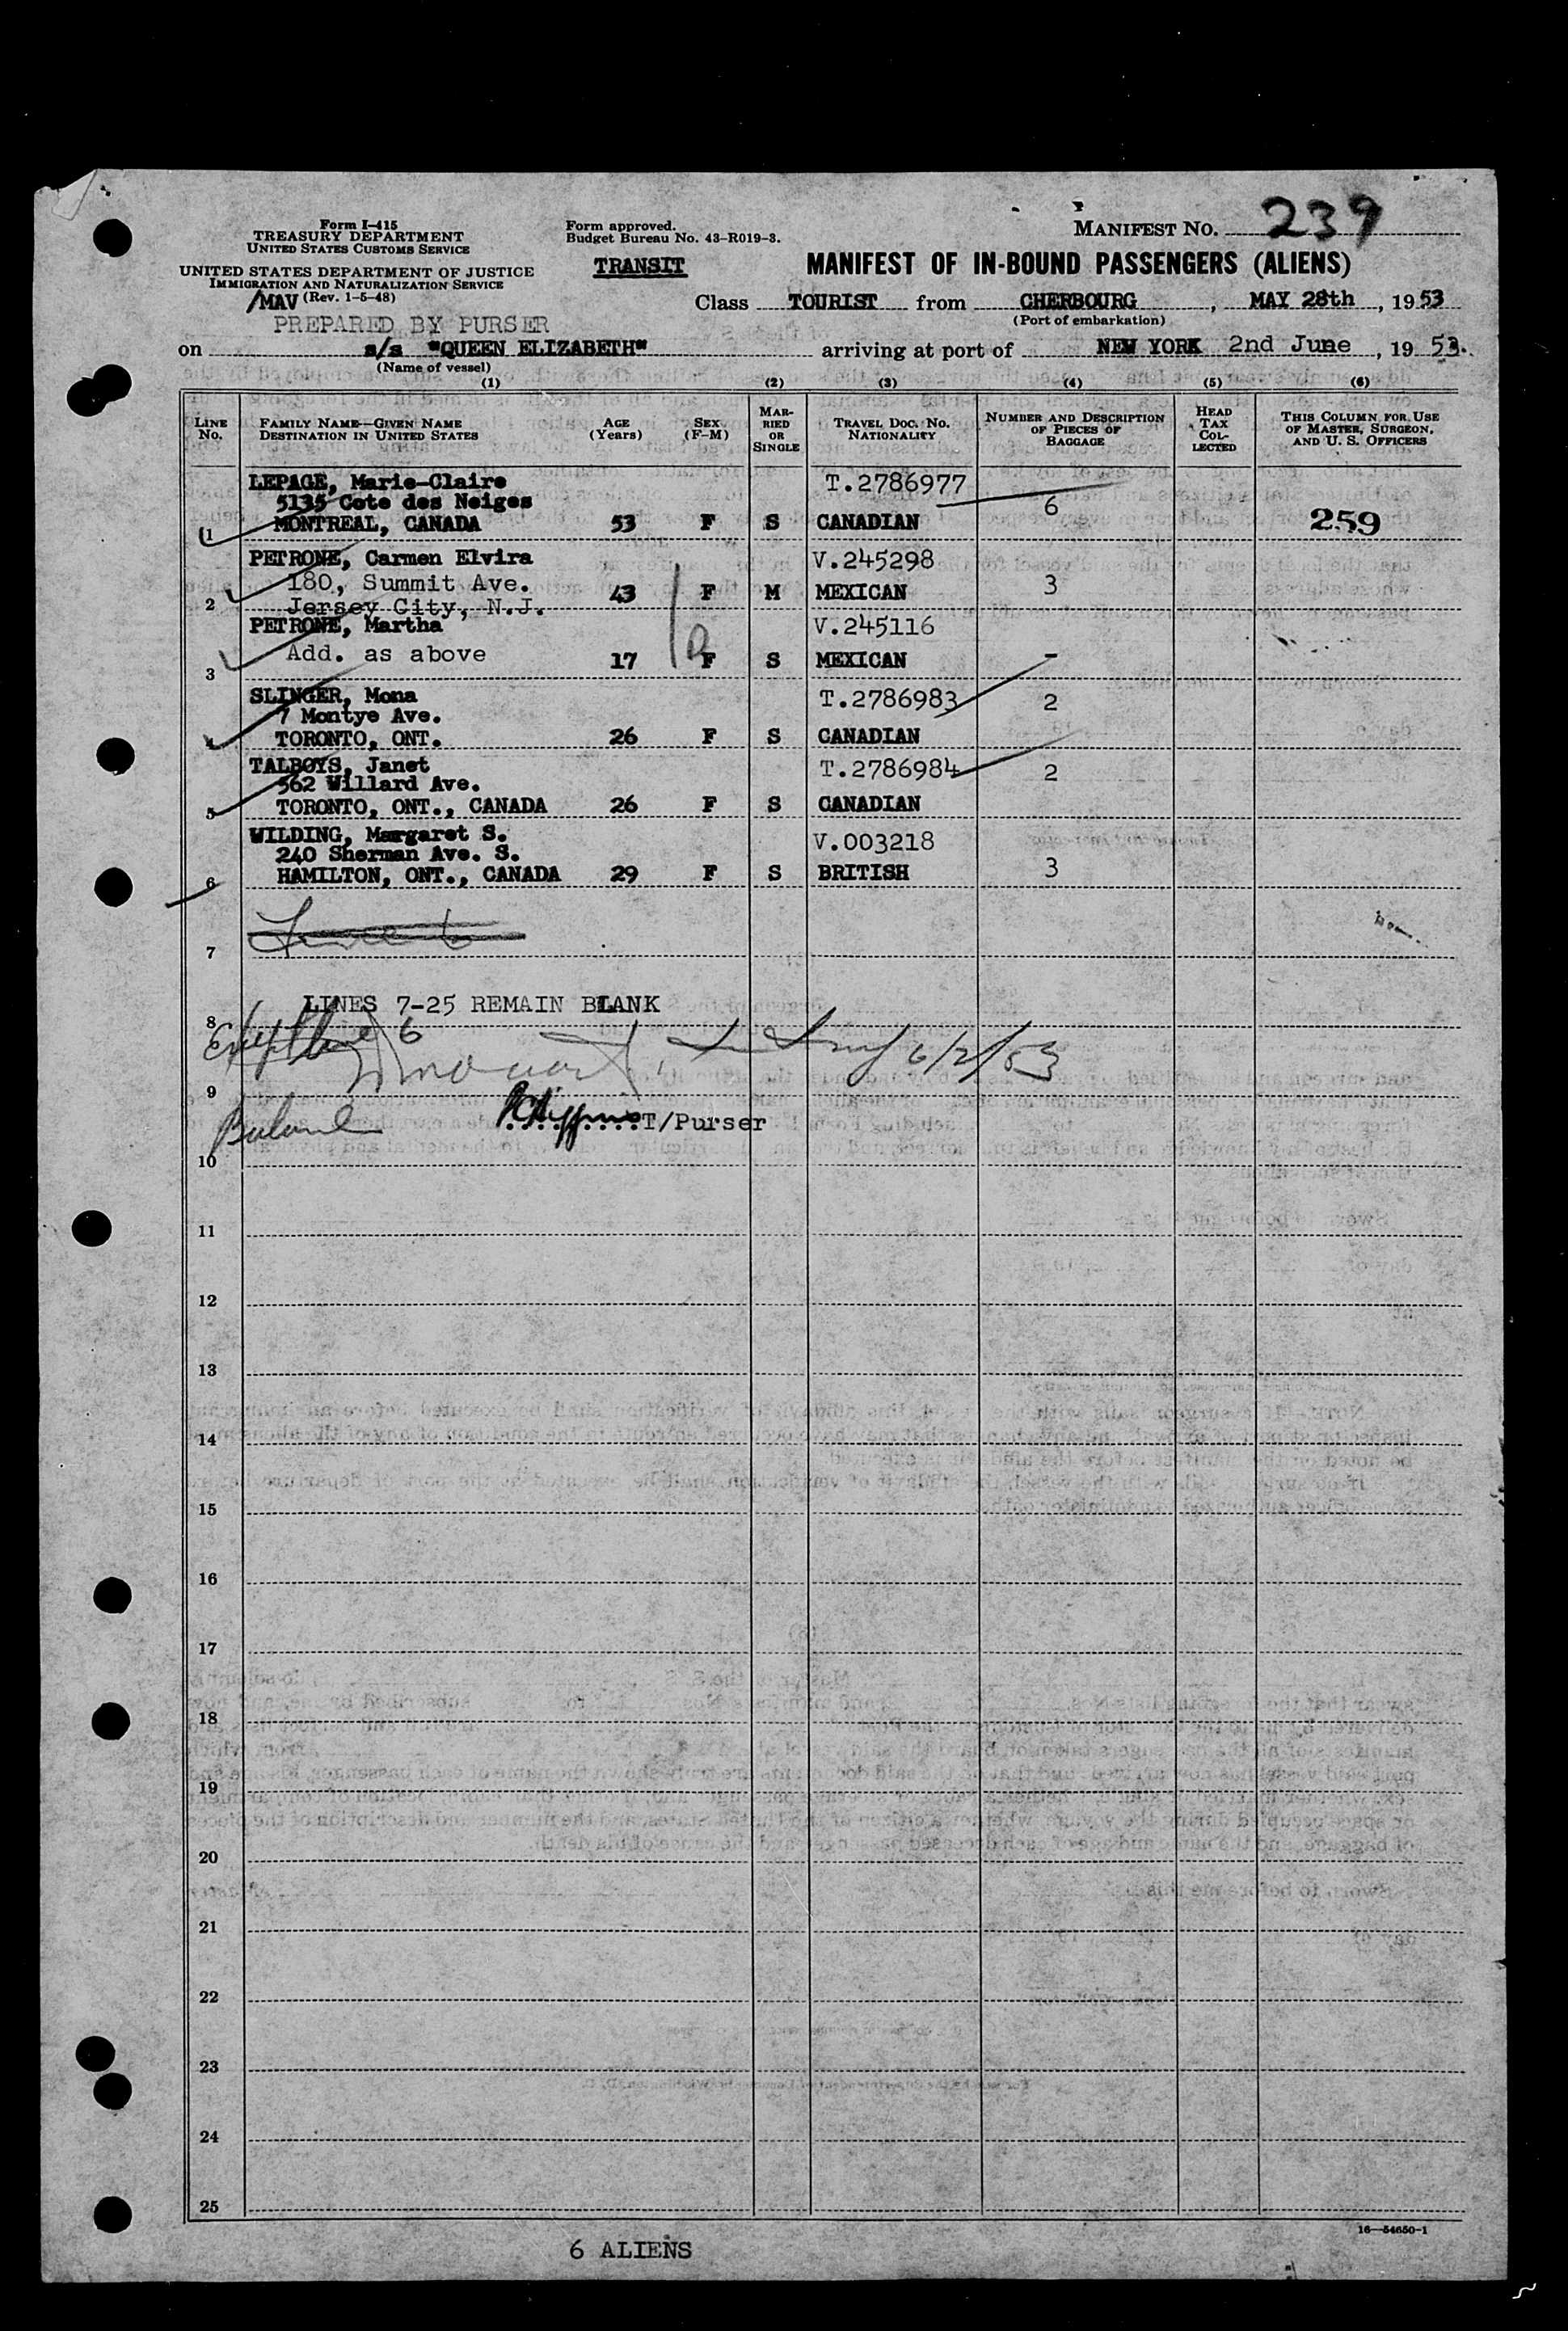 Form I-415
TREASURY DEPARTMENT
UNITED STATES CUSTOMS SERVICE
UNITED STATES DEPARTMENT OF JUSTICE
IMMIGRATION AND NATURALIZATION SERVICE
/MAV (Rev. 1-5-48)
Form approved.
Budget Bureau No. 43-R019-3.
TRANSIT
MANIFEST NO. 239
MANIFEST OF IN-BOUND PASSENGERS (ALIENS)
Class TOURIST from CHERBOURG, MAY 28th, 1953
(Port of embarkation)
PREPARED BY PURSER
on s/s "QUEEN ELIZABETH" arriving at port of NEW YORK 2nd June, 1953.
(Name of vessel)
(1) (2) (3) (4) (5) (6)
LINE No. FAMILY NAME—GIVEN NAME DESTINATION IN UNITED STATES AGE (Years) SEX (F-M) MARRIED OR SINGLE TRAVEL DOC. NO. NATIONALITY NUMBER AND DESCRIPTION OF PIECES OF BAGGAGE HEAD TAX COLLECTED THIS COLUMN FOR USE OF MASTER, SURGEON, AND U. S. OFFICERS
LEPAGE, Marie-Claire T.2786977
5135 Cote des Neiges 6
1 MONTREAL, CANADA 53 F S CANADIAN 259
PETRONE, Carmen Elvira V.245298
180, Summit Ave. 3
2 Jersey City, N.J. 43 F M MEXICAN
PETRONE, Martha V.245116
3 Add. as above 17 F S MEXICAN -
SLINGER, Mona T.2786983 2
7 Montye Ave.
4 TORONTO, ONT. 26 F S CANADIAN
TALBOYS, Janet T.2786984 2
562 Willard Ave.
5 TORONTO, ONT., CANADA 26 F S CANADIAN
WILDING, Margaret S. V.003218
240 Sherman Ave. S. 3
6 HAMILTON, ONT., CANADA 29 F S BRITISH
7
LINES 7-25 REMAIN BLANK
8
Except line 6
6/2/53
9
T/Purser
10
11
12
13
14
15
16
17
18
19
20
21
22
23
24
25
16—54650-1
6 ALIENS